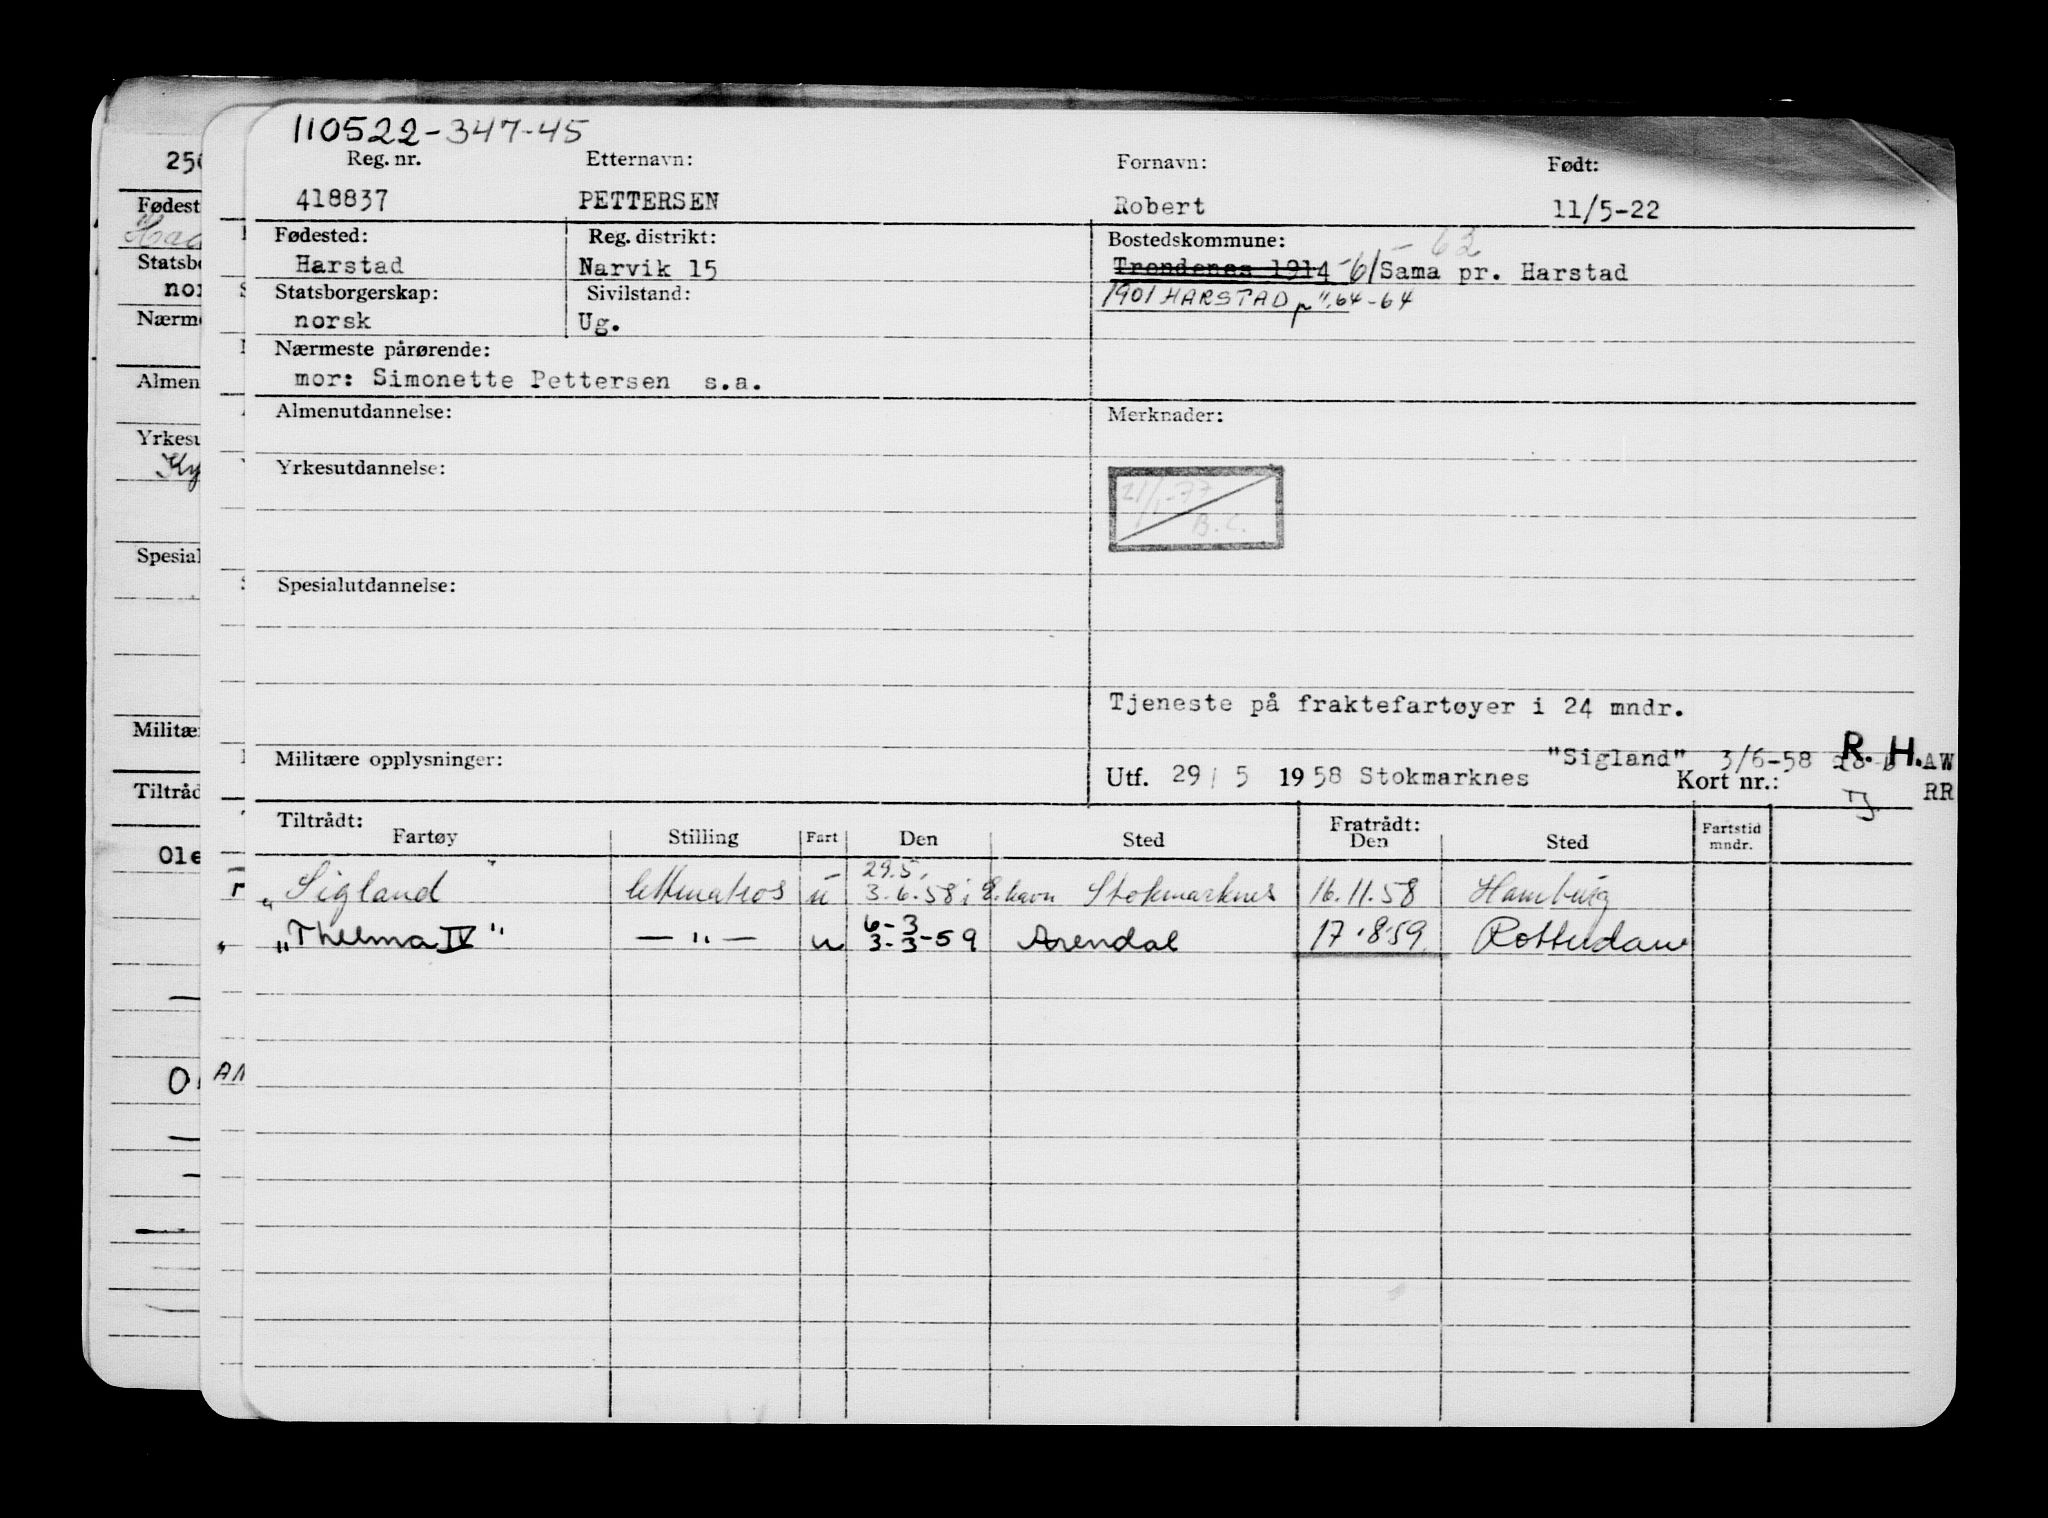 110522-347-45
Reg. nr. Etternavn: Fornavn: Født:
418837 PETTERSEN Robert 11/5-22
Fødested: Reg. distrikt: Bostedskommune: -62
Harstad Narvik 15 Trondenes 1914 -61 Sama pr. Harstad
Statsborgerskap: Sivilstand: 1901 HARSTAD 64-64
norsk Ug.
Nærmeste pårørende:
mor: Simonette Pettersen s.a.
Almenutdannelse: Merknader:
Yrkesutdannelse:
21/1-77
Spesialutdannelse:
Tjeneste på fraktefartøyer i 24 mndr.
Militære opplysninger: "Sigland" 3/6-58 R. H. AW
Utf. 29/5 1958 Stokmarknes Kort nr.: RR
Tiltrådt: Fratrådt:
Fartøy Stilling Fart Den Sted Den Sted Fartstid mndr.
29.5.
"Sigland" lettmatros u 3.6.58 i Stokmarknes 16.11.58 Hamburg
6-3
"Thelma IV" — " — u 3-3-59 Arendal 17.8.59. Rotterdam
250
Fødest
Statsbo
nor
Nærme
Almen
Yrkesu
Ky
Spesial
Militær
Tiltråd
Ole